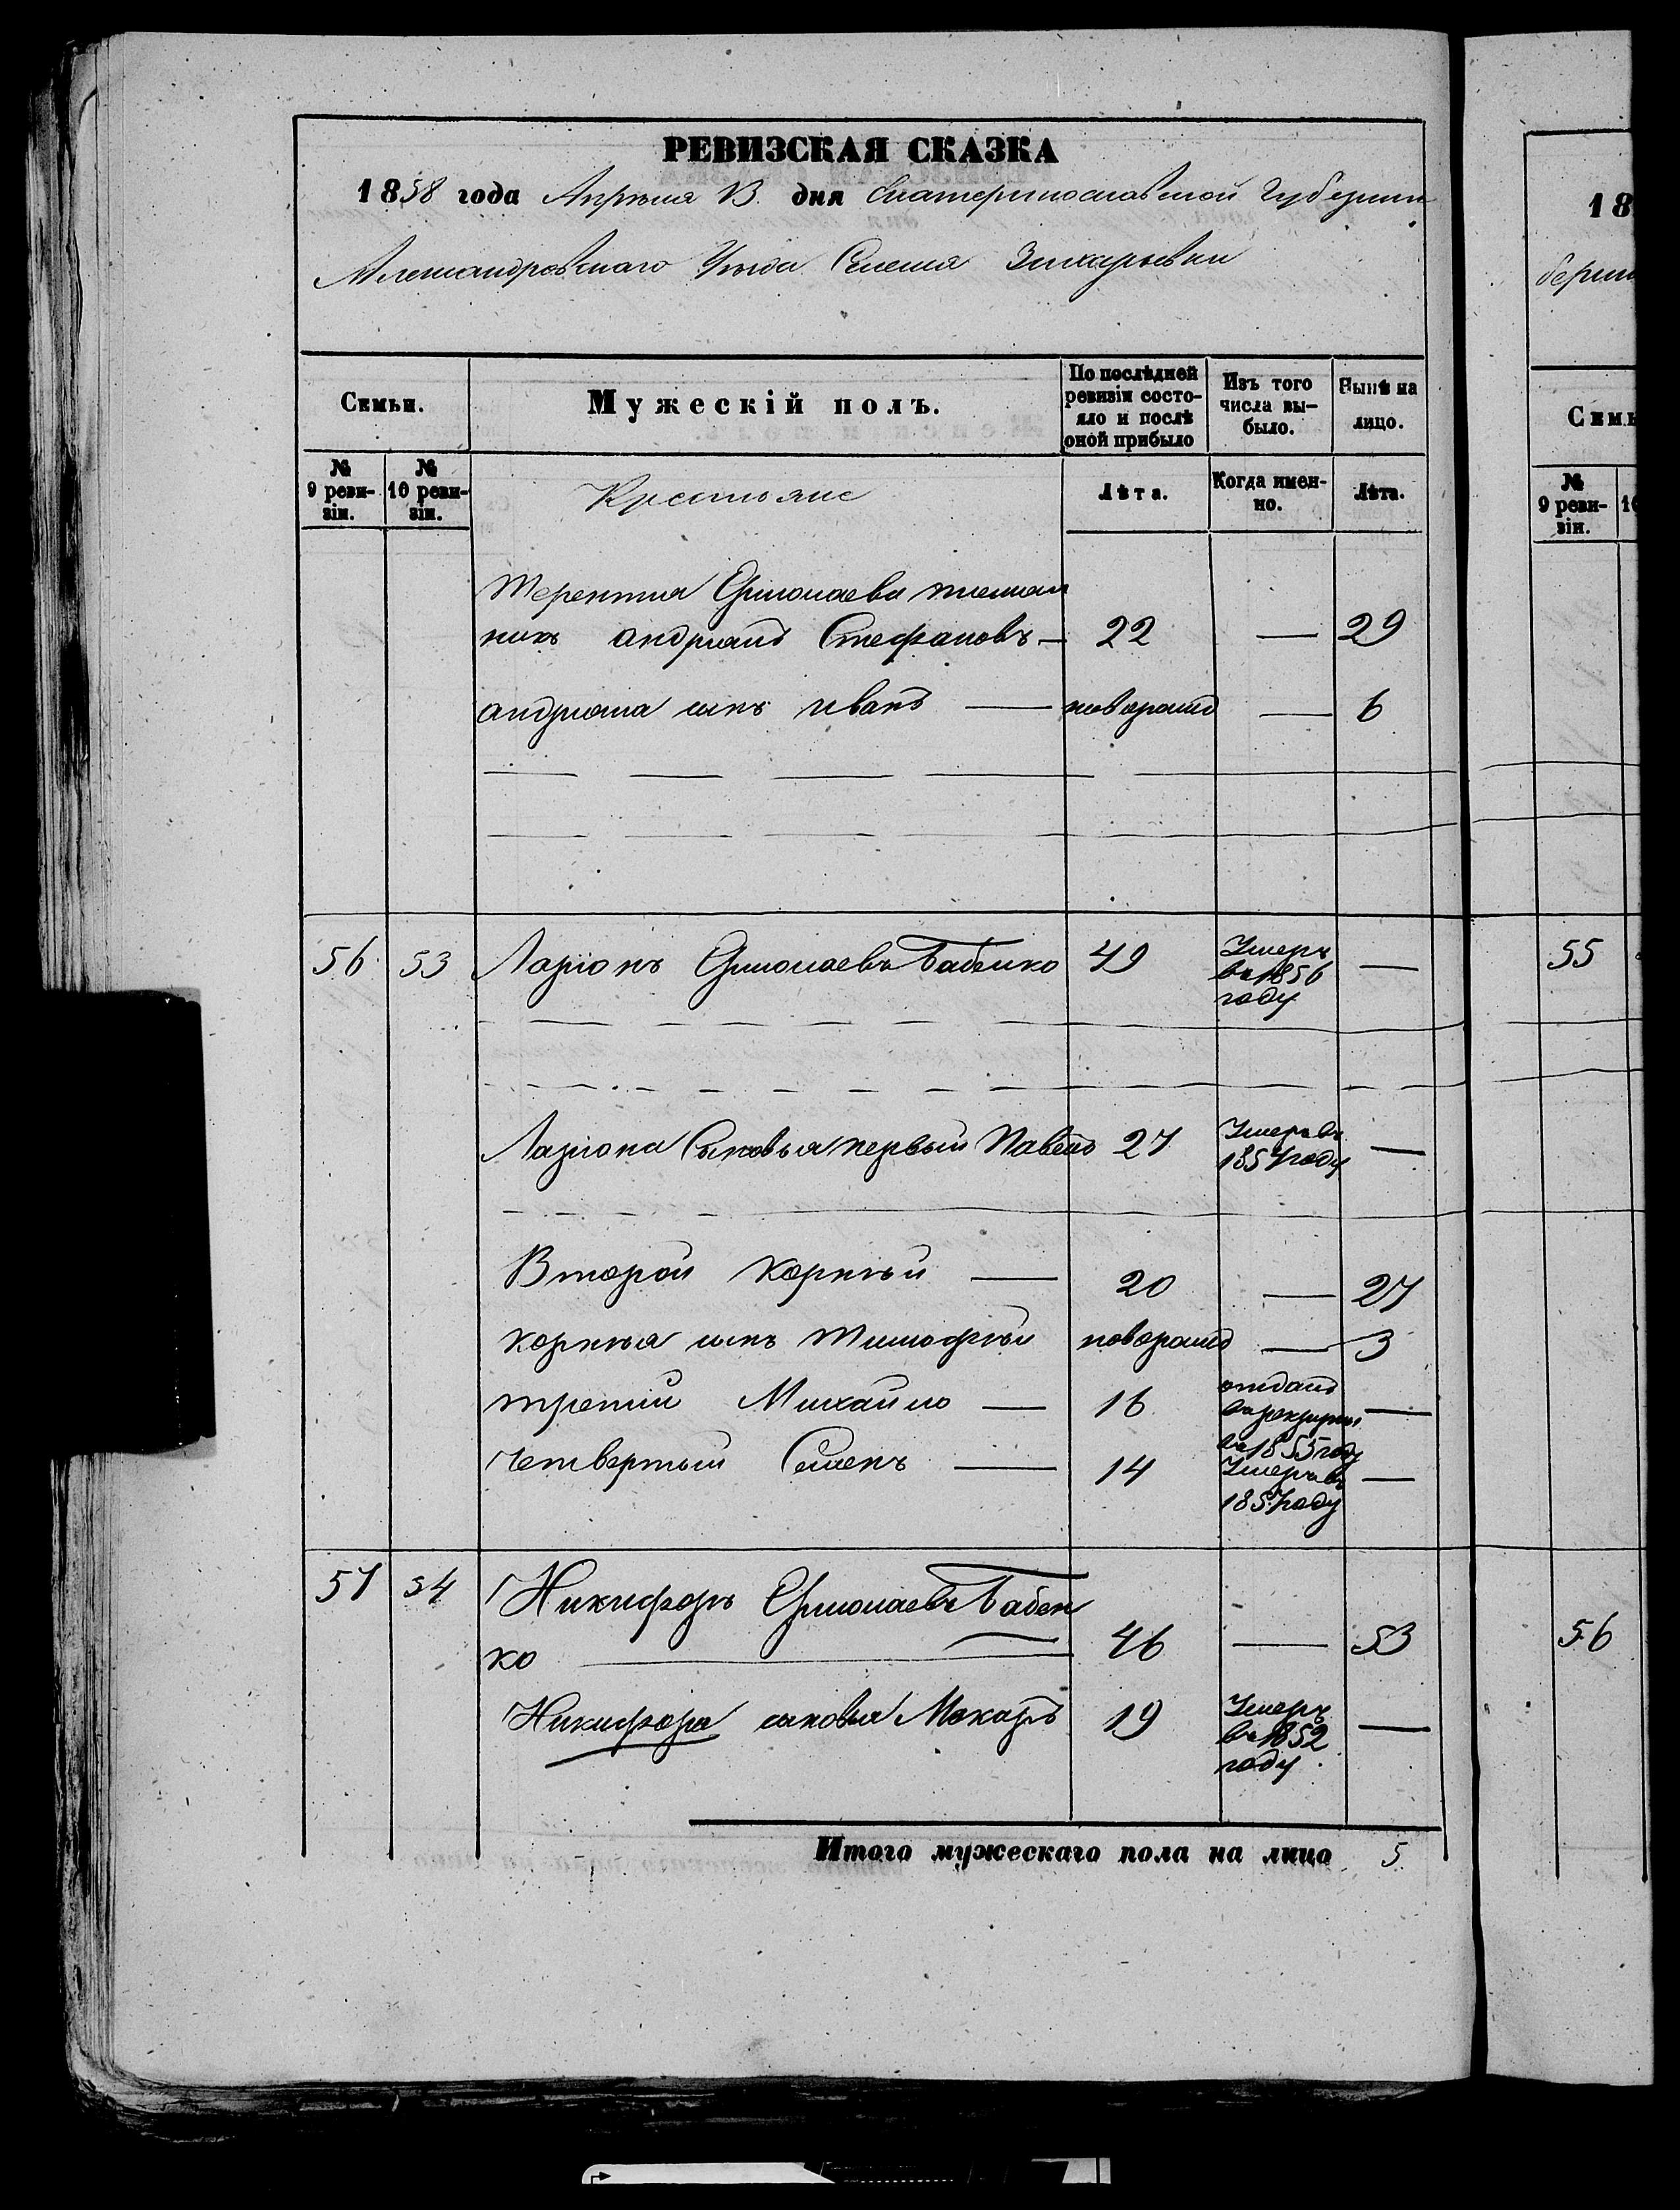 РЕВИЗСКАЯ СКАЗКА
1858 года Апрѣля 13. дня Екатеринославской Губерніи
Александровскаго Уѣзда Селенія
18
берні
Семьи.
Мужескій полъ.
По послѣдней ревизіи состояло и послѣ оной прибыло
Изъ того числа выбыло.
Нынѣ на лицо.
Семь
№ 9 ревизіи.
№ 10 ревизіи.
Крестьяне
Лѣта.
Когда именно.
Лѣта.
№ 9 ревизіи.
10
Терентія Ермолаева племян
никъ андріанъ Стефановъ — 22 — 29
андріана сынъ иванъ — новорожд — 6
56 53 Ларіонъ Ермолаевъ Бабенко 49 Умеръ въ 1856 году —
55
Ларіона Сыновья первый Павелъ 27 Умеръ въ 1857 году —
Второй Корнѣй — 20 — 27
корнѣя сынъ Тимофѣй новорожд — 3
третій Михайло — 16 отданъ въ рекруты въ 1855 году —
четвертый Семенъ — 14 Умеръ въ 1857 году —
57 54 Никифоръ Ермолаевъ Бабен
ко — 46 — 53
56
Никифора сыновья Макаръ 19 Умеръ въ 1852 году —
Итого мужескаго пола на лицо 5.